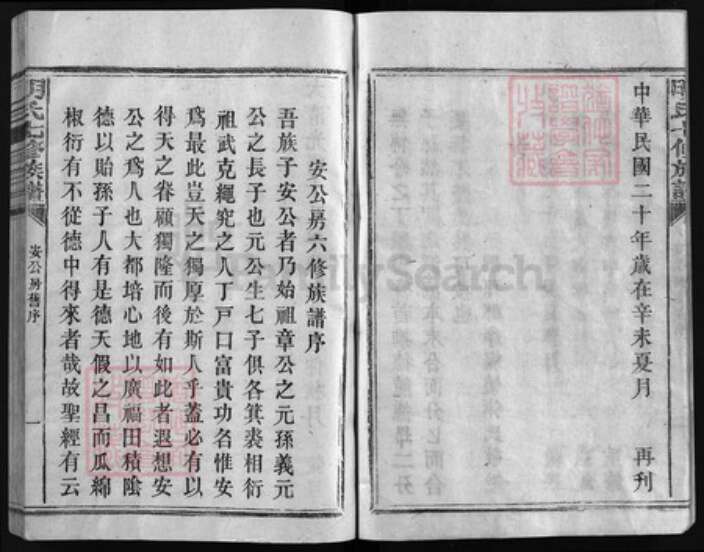 中華民國二十年歲在辛未夏月 再刊
安公房六修族譜序
吾族子安公者乃始祖章公之元孫義元
公之長子也元公生七子俱各箕裘相衍
祖武克繩究之人丁戸口富貴功名惟安
爲最此豈天之獨厚於斯人乎蓋必有以
得天之眷顧獨隆而後有如此者遐想安
公之爲人也大都培心地以廣福田積陰
德以貽孫子人有是德天假之昌而瓜綿
椒衍有不從德中得來者哉故聖經有云
安公房舊序
一
氏七修族譜
FamilySearch